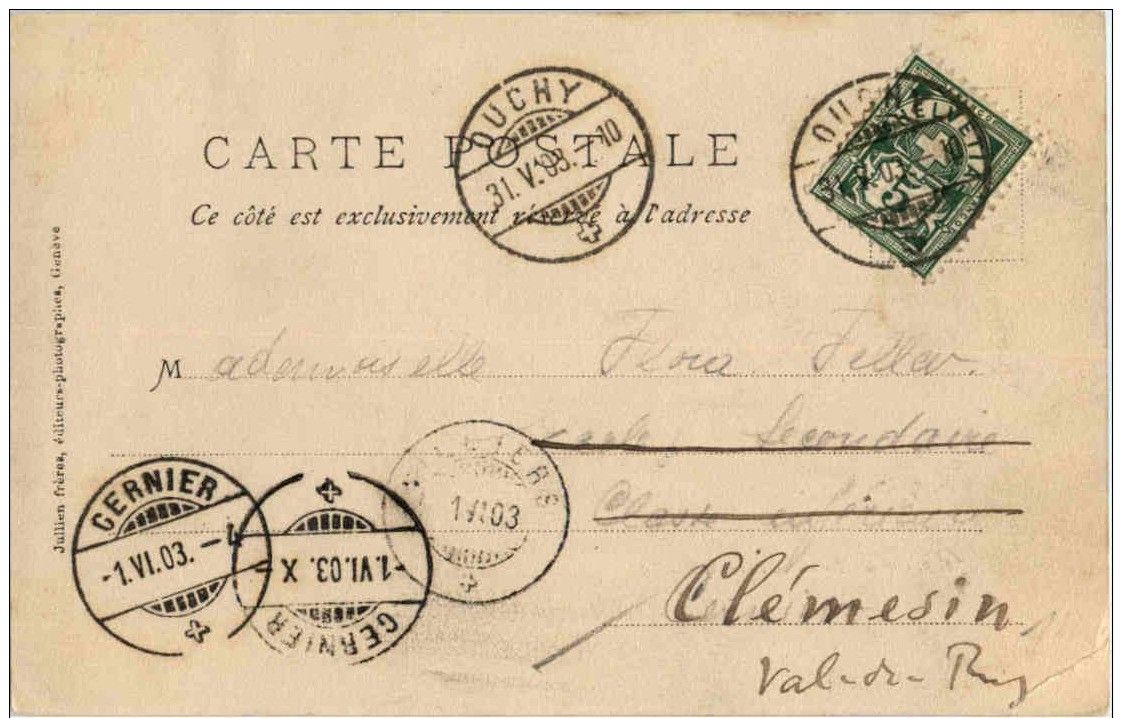 OUCHY
31.V.03.-10
HELVETIA
5
CARTE POSTALE
Ce côté est exclusivement réservé à l'adresse
Jullien frères, éditeurs-photographes, Genève
Mademoiselle Flora
Secondaire
CERNIER
-1.VI.03.-4
CERNIER
-1.VI.03. X
1 VI 03
Clémesin,
Val-de-Ruz